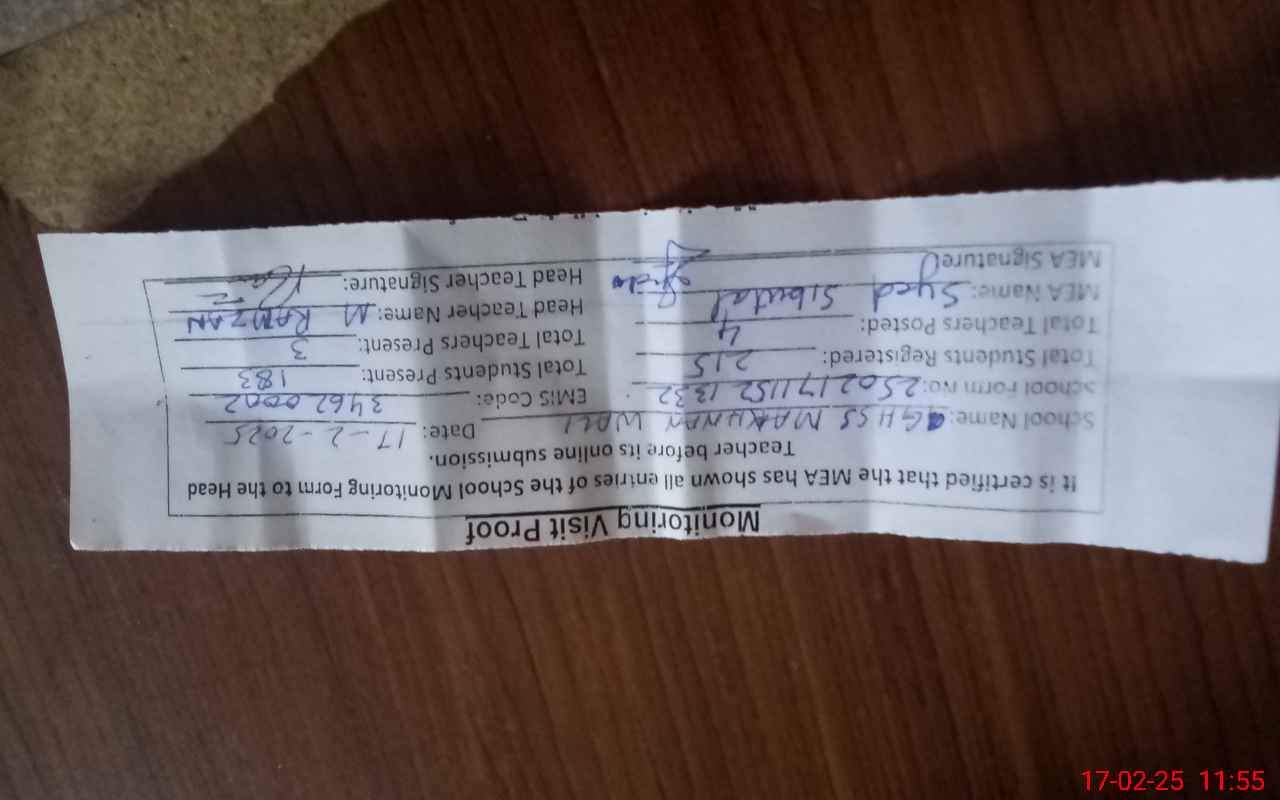 Monitoring Visit Proof
It is certified that the MEA has shown all entries of the School Monitoring Form to the Head
Teacher before its online submission.
School Name: GHSS MAKHNAN WALI Date: 17-2-2025
School Form No: 2502171152 1332 EMIS Code: 34620002
Total Students Registered: 215 Total Students Present: 183
Total Teachers Posted: 4 Total Teachers Present: 3
MEA Name: Syed Head Teacher Name: M RAMZAN
MEA Signature: Head Teacher Signature:
17-02-25 11:55